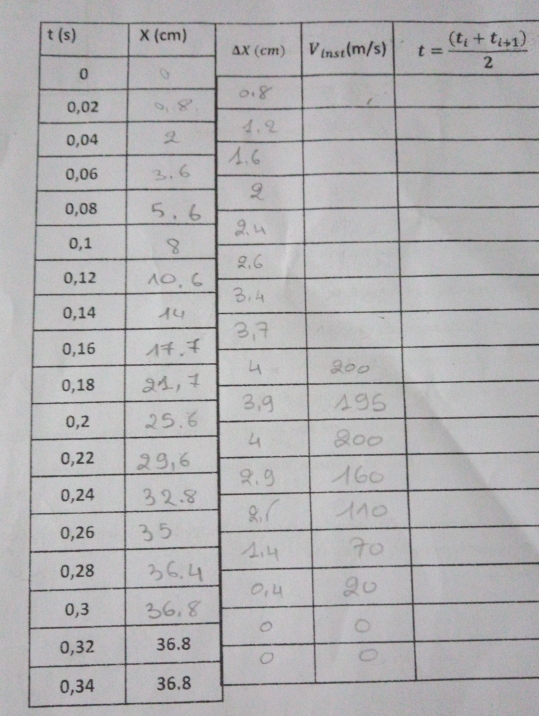 t (s) X (cm) ΔX (cm) V_inst(m/s) t = (t_i + t_{i+1}) / 2
0 0
0.8
0,02 0.8
1.2
0,04 2
1.6
0,06 3.6
2
0,08 5.6
2.4
0,1 8
2.6
0,12 10.6
3.4
0,14 14
3,7
0,16 17.7
4 200
0,18 21,7
3,9 195
0,2 25.6
4 200
0,22 29,6
2.9 160
0,24 32.8
110
0,26 35
1.4 70
0,28 36.4
0,4 20
0,3 36.8
0 0
0,32 36.8
0 0
0,34 36.8